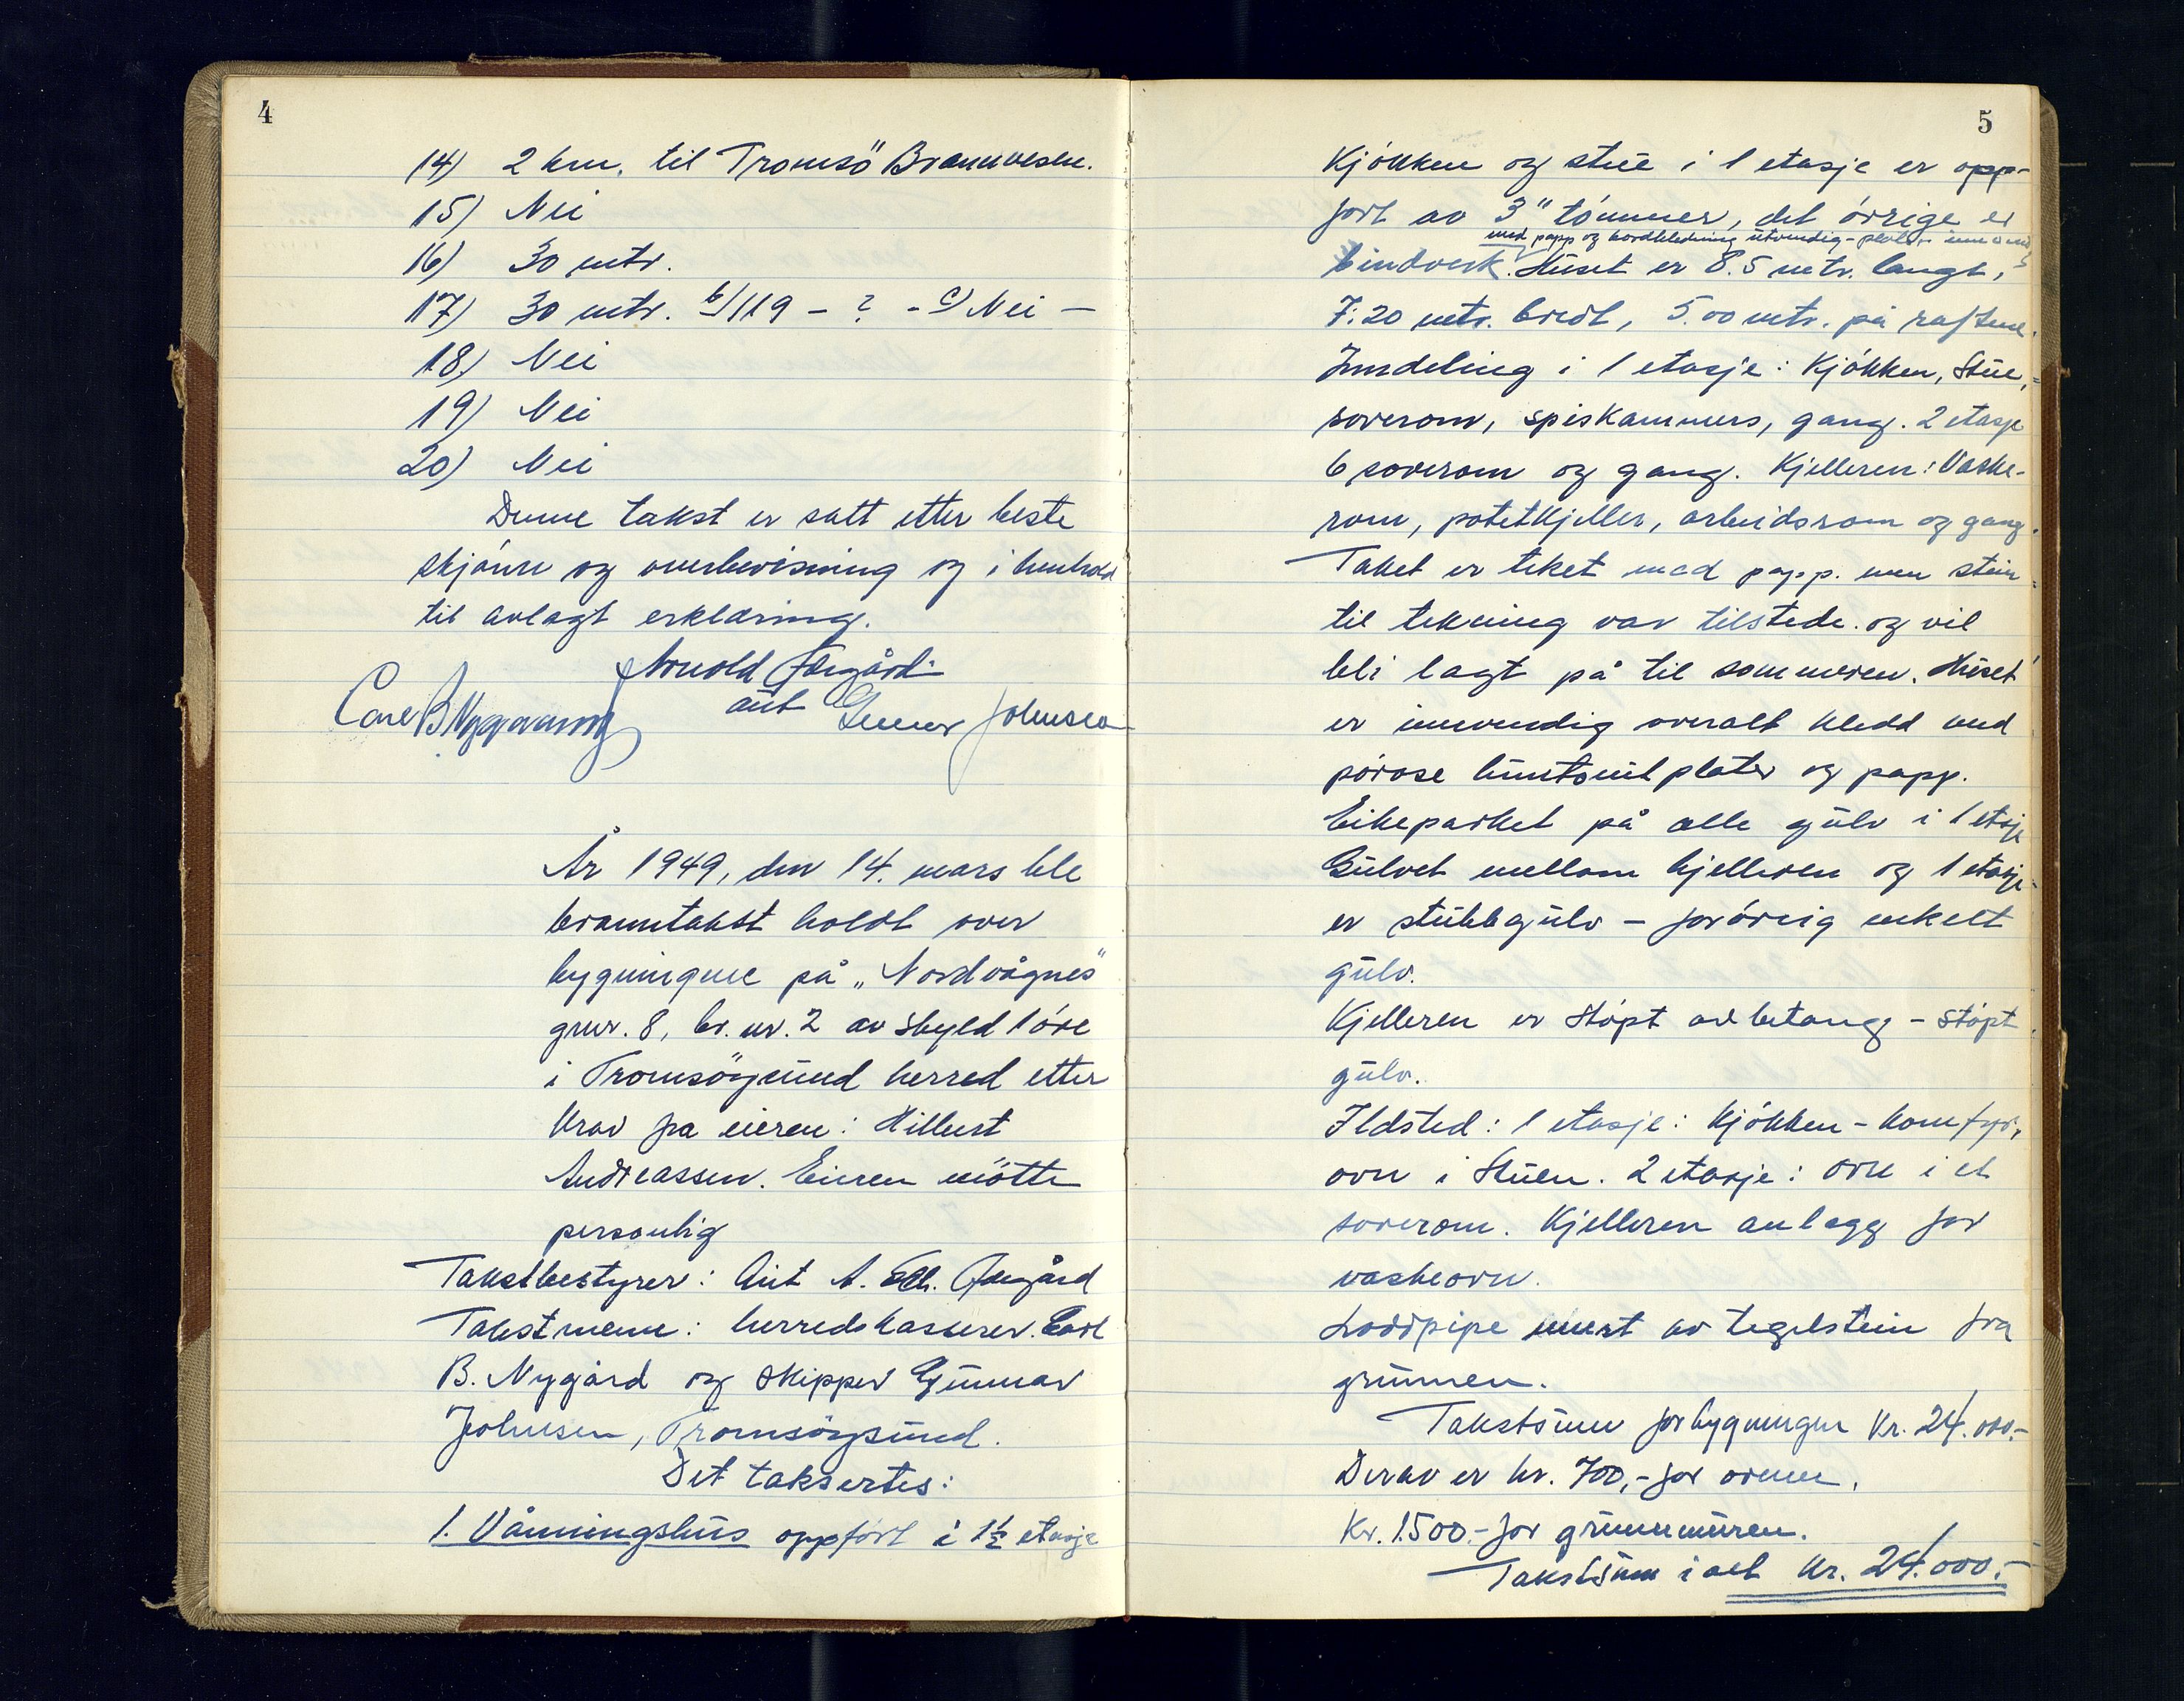 4
14) 2 km. til Tromsö Brannvesen.
15) Nei
16) 30 mtr.
17) 30 mtr. b/119 - ? - c) Nei -
18) Nei
19) Nei
20) Nei
Denne takst er satt etter beste
skjönn og overbevisning og i henhold
til avlagt erklæring.
Arnold
aut Gunnar Johnsen
Carl B Nygaard
År 1949, den 14. mars ble
branntakst holdt over
bygningene på „Nordvågnes"
gnr. 8, br. nr. 2 av skyld 1 öre
i Tromsöysund herred etter
krav fra eieren: Hilbert
Andreassen. Eieren mötte
personlig
Takstbestyrer: Aut A. Edh.
Takstmenn: herredskasserer Carl
B. Nygård og skipper Gunnar
Johnsen, Tromsöysund.
Det taksertes:
1. Våningshus oppfört i 1½ etasje
5
Kjökken og stue i 1 etasje er opp-
fört av 3" tömmer, det övrige er
med papp og bordkledning utvendig - plater innvend
bindverk. Huset er 8.5 mtr. langt,
7.20 mtr. bredt, 5.00 mtr. på raftene.
Inndeling i 1 etasje: Kjökken, stue,
soverom, spiskammers, gang. 2 etasje
6 soverom og gang. Kjelleren: Vaske-
rom, potetkjeller, arbeidsrom og gang.
Taket er teket med papp. men stein
til tekning var tilstede og vil
bli lagt på til sommeren. Huset
er innvendig overalt kledd med
poröse huntonitplater og papp.
Eikeparket på alle gulv i 1 etasje
Gulvet mellom kjelleren og 1 etasje
er stubbgulv - forövrig enkelt
gulv.
Kjelleren er stöpt av betong - stöpt
gulv.
Ildsted: 1 etasje: kjökken - komfyr,
ovn i stuen. 2 etasje: ovn i et
soverom. Kjelleren anlegg for
vaskeovn.
Loddpipe murt av tegelstein fra
grunnen.
Takstsum for bygningen kr. 24.000.-
Derav er kr. 700,- for ovnene.
Kr. 1.500.- for grunnmuren.
Takstsum i alt kr. 24.000.-